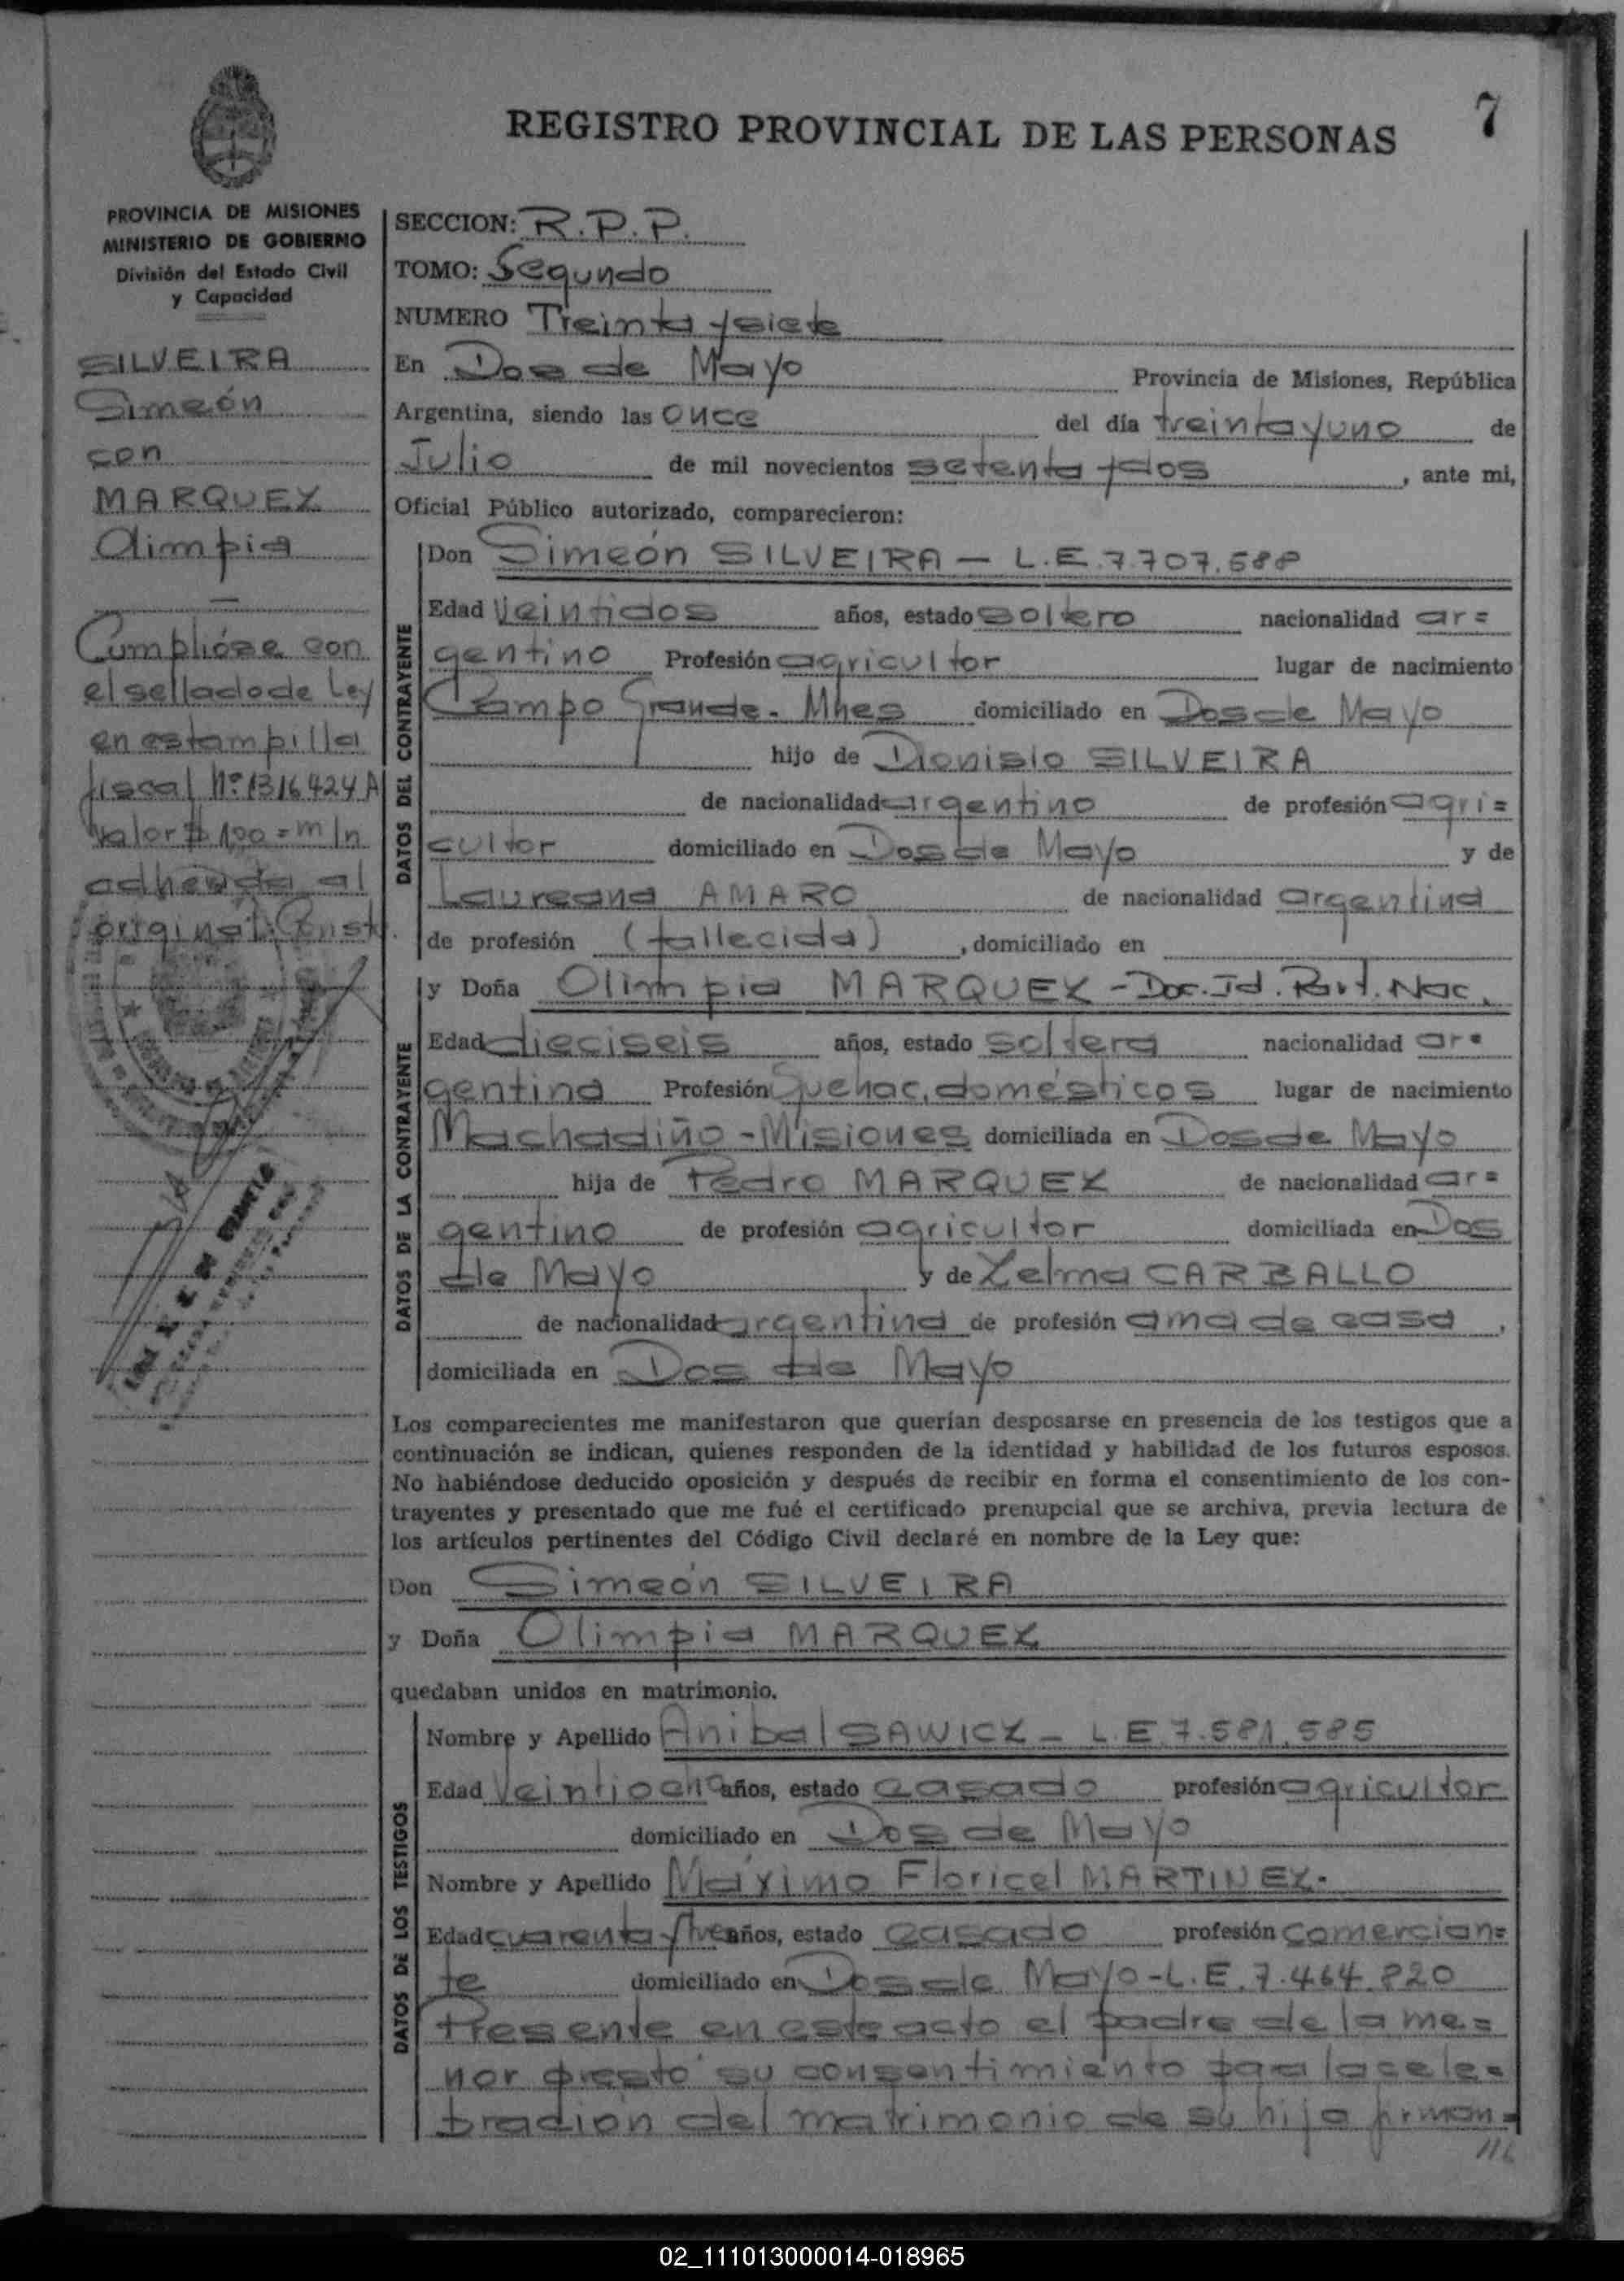 7
REGISTRO PROVINCIAL DE LAS PERSONAS
PROVINCIA DE MISIONES
MINISTERIO DE GOBIERNO
División del Estado Civil
y Capacidad
SILVEIRA
Simeón
con
MARQUEZ
Olimpia
Cumplióse con
el sellado de Ley
en estampilla
fiscal Nº 1316424 A
valor $ 100= m/n
adherida al
original. Const.
SECCION: R.P.P.
TOMO: Segundo
NUMERO Treinta y siete
En Dos de Mayo Provincia de Misiones, República
Argentina, siendo las once del día treinta y uno de
Julio de mil novecientos setenta y dos, ante mi,
Oficial Público autorizado, comparecieron:
DATOS DEL CONTRAYENTE
Don Simeón SILVEIRA - L.E. 7.707.588
Edad Veintidos años, estado soltero nacionalidad ar=
gentino Profesión agricultor lugar de nacimiento
Campo Grande - Mnes domiciliado en Dos de Mayo
hijo de Dionisio SILVEIRA
de nacionalidad argentino de profesión agri=
cultor domiciliado en Dos de Mayo y de
Laureana AMARO de nacionalidad argentina
de profesión (fallecida), domiciliado en
DATOS DE LA CONTRAYENTE
y Doña Olimpia MARQUEZ - Doc. Id. Part. Nac.
Edad dieciseis años, estado soltera nacionalidad ar=
gentina Profesión Quehac. domésticos lugar de nacimiento
Machadiño - Misiones domiciliada en Dos de Mayo
hija de Pedro MARQUEZ de nacionalidad ar=
gentino de profesión agricultor domiciliada en Dos
de Mayo y de Zelma CARBALLO
de nacionalidad argentina de profesión ama de casa,
domiciliada en Dos de Mayo
Los comparecientes me manifestaron que querían desposarse en presencia de los testigos que a
continuación se indican, quienes responden de la identidad y habilidad de los futuros esposos.
No habiéndose deducido oposición y después de recibir en forma el consentimiento de los con-
trayentes y presentado que me fué el certificado prenupcial que se archiva, previa lectura de
los artículos pertinentes del Código Civil declaré en nombre de la Ley que:
Don Simeón SILVEIRA
y Doña Olimpia MARQUEZ
quedaban unidos en matrimonio.
DATOS DE LOS TESTIGOS
Nombre y Apellido Anibal SAWICZ - L.E. 7.581.585
Edad Veintiocho años, estado casado profesión agricultor
domiciliado en Dos de Mayo
Nombre y Apellido Máximo Floricel MARTINEZ.
Edad cuarenta y años, estado casado profesión comercian=
te domiciliado en Dos de Mayo - L.E. 7.464.820
Presente en este acto el padre de la me=
nor prestó su consentimiento para la cele=
bración del matrimonio de su hija firman=
02_111013000014-018965